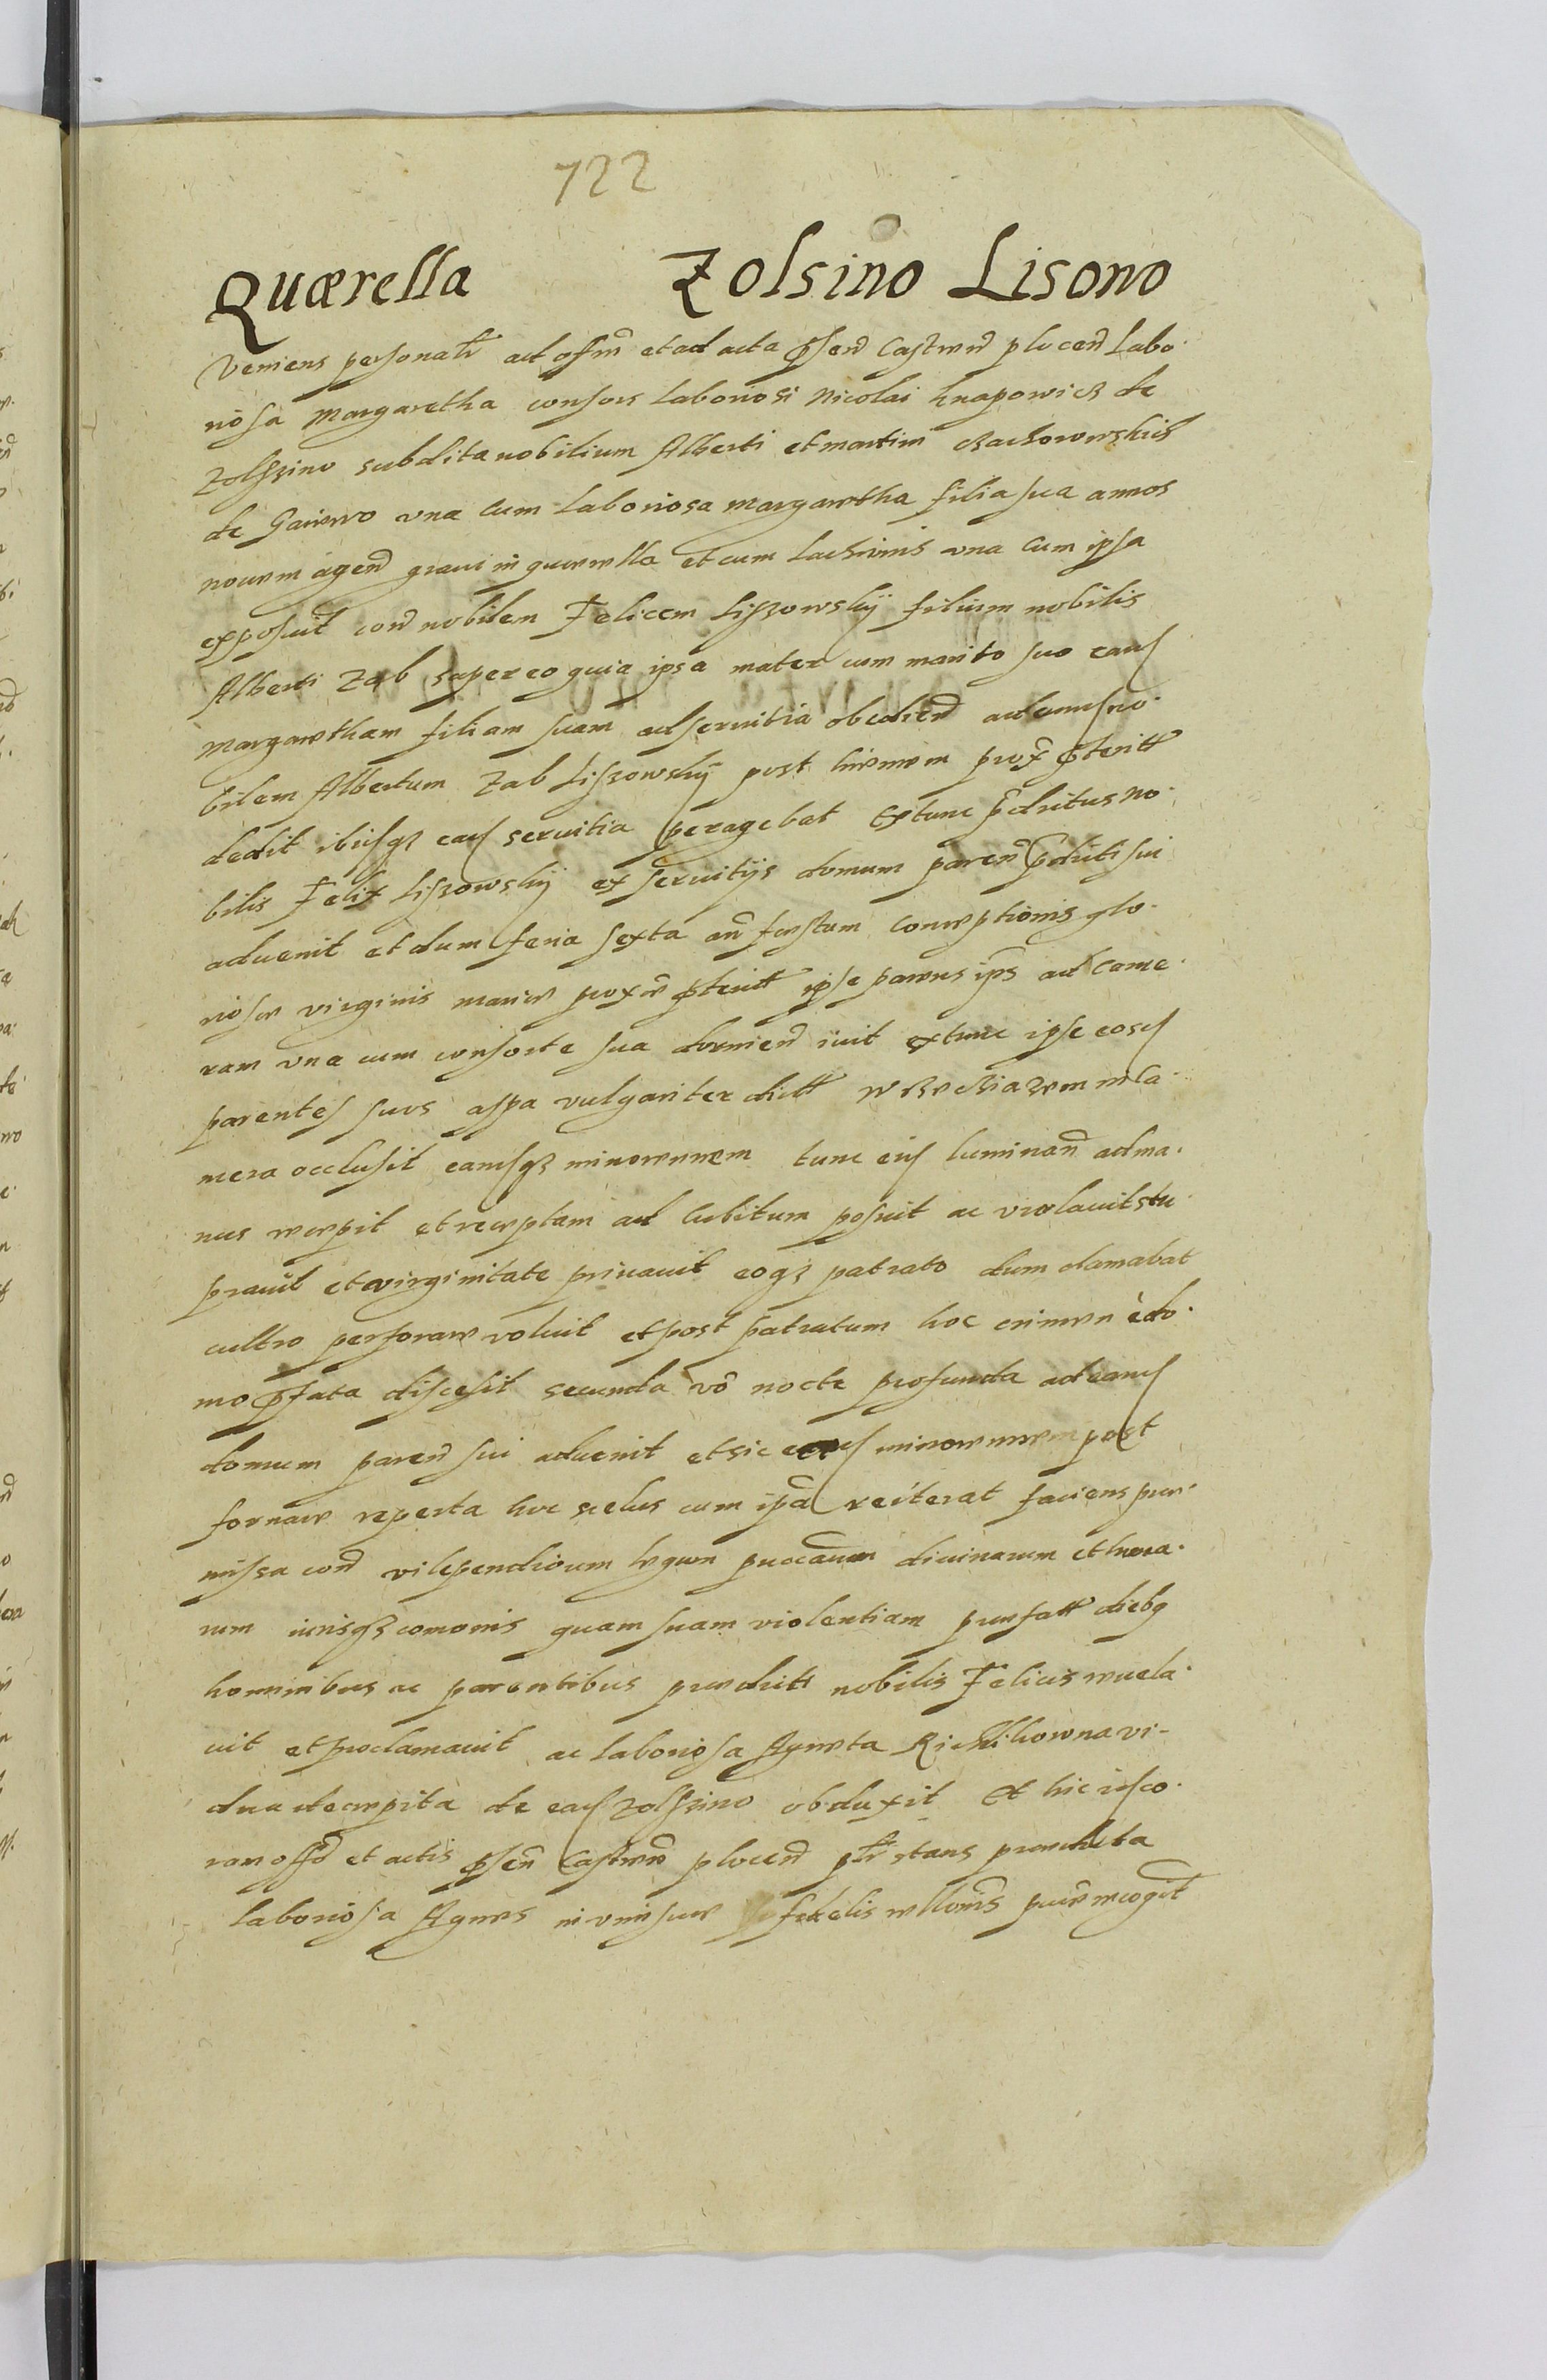 722
Quærella Zolsino Lisono
Veniens personalr ad offm et ad acta pñ Castren plocen labo-
riosa Margaretha consors laboriosi Nicolai Knapowicz de
Zolszino subdita nobilium Alberti et Martini
de una cum laboriosa Margaretha filia sua annos
novem agen gravi in querella et cum lachrimis una cum ipsa
exposuit con nobilem Felicem Liszowskij filium nobilis
Alberti Zab super eo quia ipsa mater cum marito suo eand
Margaretham filiam suam ad servitia obedien ad eund no-
bilem Albertum Zab Liszowskij post hiemem prox pterit
dedit ibidqz ead servitia peragebat extunc pdictus no-
bilis Felix Liszowskij ex servitijs domum paren pdicti sui
advenit et dum feria sexta an festum Conceptionis glo-
riose virginis Marie proxe pterit ipse parens ips ad came-
ram una cum consorte sua dormien ivit extunc ipse eosd
parentes suos aspa vulgariter dict in ca-
mera occlusit eandqz minorennem tunc eid luminan ad ma-
nus recepit et receptam ad cubitum posuit ac violavit stu-
pravit et virginitate privavit eoqz patrato dum clamabat
cultro perforare voluit et post patratum hoc crimen e do-
mo pfata discesit secunda vo nocte profunda ad eand
domum paren sui advenit et sic eand minorennem post
fornace reperta hoc scelus cum ipa reiterat faciens pre-
missa con vilipendioum legum divinarum et huma-
rum iurisqz comonis quam suam violentiam prefatt diebq
hominibus ac parentibus predicti nobilis Felicis revela-
vit et proclamavit ac laboriosa Agneta vi-
dua decrepita de ead Zolszino obduxit Et hic id co-
ram offo et actis psen Castren plocen plr stans predicta
laboriosa Agnes in fidelis recogit